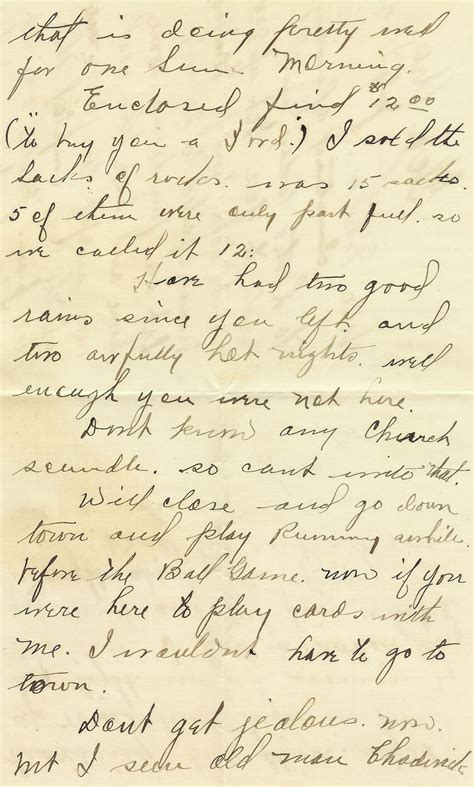 that is doing pretty well
for one Sun Morning.
Enclosed find $12.00
("to buy you a Ford.) I sold the
sacks of rocks. was 15 sacks.
5 of them were only part full. so
we called it 12:
Have had two good
rains since you left. and
two awfully hot nights. well
enough you were not here.
Dont know any Church
scundle. so cant write that.
Will close and go down
town and play Rummy awhile.
before the Ball Game. now if you
were here to play cards with
me. I wouldnt have to go to
town.
Dont get jealous. now.
but I seen old man Chadwick